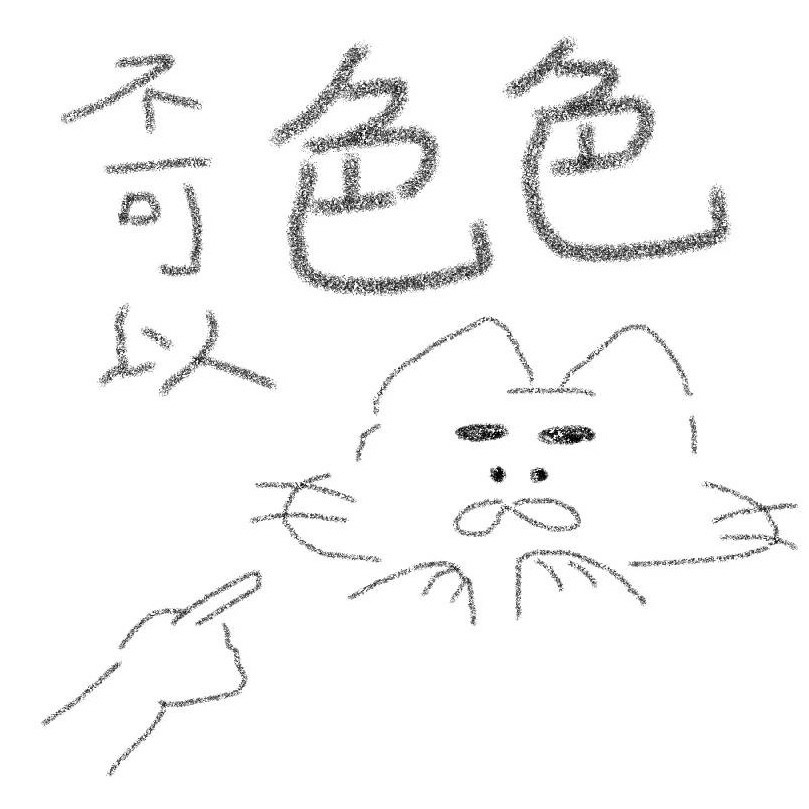 不可以
色色